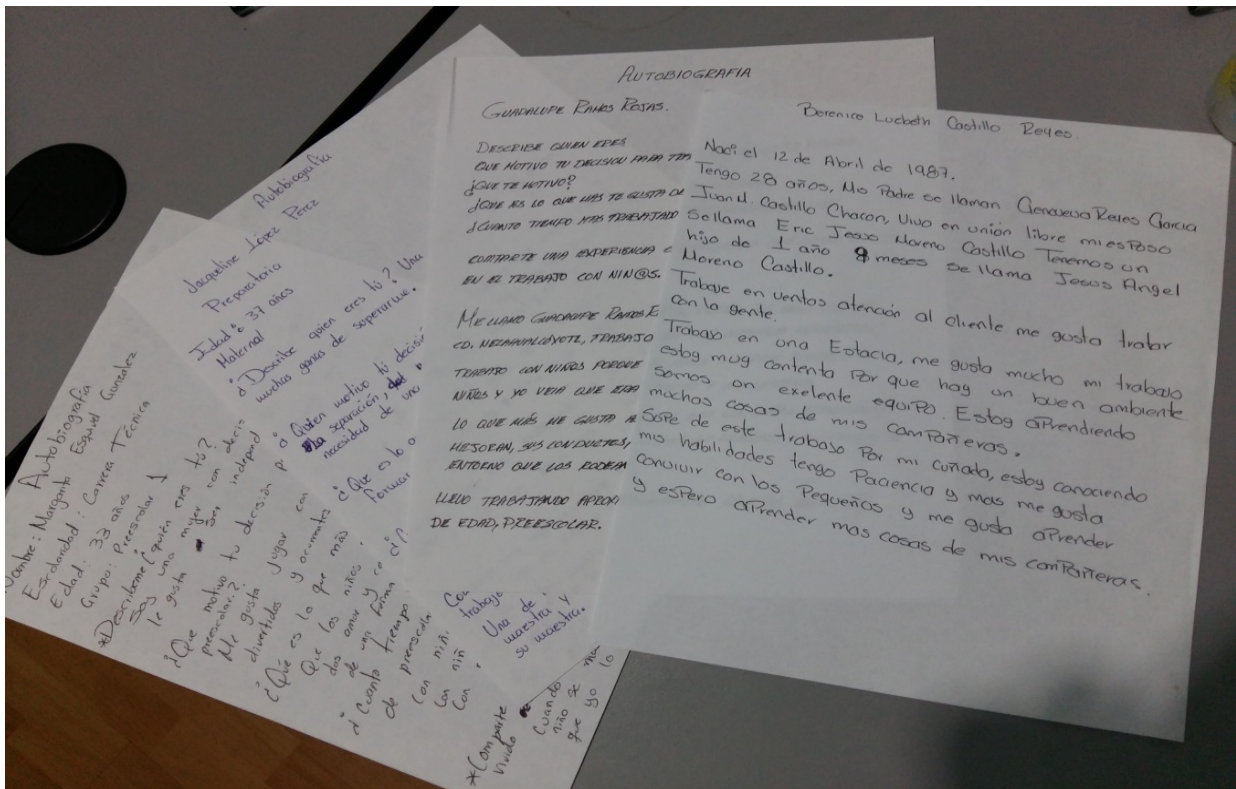 Autobiografía
Nombre: Margarita Esquivel Gonzalez
Escolaridad: Carrera Técnica
Edad: 33 años
Grupo: Preescolar 1
*Describeme ¿quién eres tú?
Soy una mujer con decis
le gusta ser independ
¿Que motivo tu decisión p
preescolar?
Me gusta jugar con
divertidos y ocurrentes
¿Qué es lo que más
Que los niños
dan amor y re
de una forma
¿Cuanto tiempo
de preescola
Con niñ
Con niñ
Con
*Comparte
vivido
Cuando
niño se
que yo lo
Autobiografía
Jacqueline López Pérez
Preparatoria
Edad: 37 años
Maternal
¿Describe quien eres tú? Una
muchas ganas de superarme.
¿Quien motivo tú decisi
separación,
necesidad de uno
¿Que es lo
Formar
Una de
maestra y
su maestra.
AUTOBIOGRAFIA
GUADALUPE RAMOS ROJAS.
DESCRIBE QUIEN ERES
QUE MOTIVO TU DECISION PARA TRA
¿QUE TE MOTIVO?
¿QUE ES LO QUE MAS TE GUSTA DE
¿CUANTO TIEMPO HAS TRABAJADO
COMPARTE UNA EXPERIENCIA
EN EL TRABAJO CON NIN@S.
ME LLAMO GUADALUPE RAMOS R
CD. NEZAHUALCÓYOTL, TRABAJO
TRABAJO CON NIÑOS PORQUE
NIÑOS Y YO VEIA QUE ERA
LO QUE MÁS ME GUSTA
MEJORAN, SUS CONDUCTAS,
ENTORNO QUE LOS RODEAN
LLEVO TRABAJANDO APROX
DE EDAD, PREESCOLAR.
Berenice Lucbeth Castillo Reyes.
Naci el 12 de Abril de 1987.
Tengo 28 años, Mo Padre se llaman Genoveva Reyes Garcia
Juan M. Castillo Chacon, Vivo en unión libre mi esposo
Se llama Eric Jesus Moreno Castillo Tenemos un
hijo de 1 año 8 meses se llama Jesus Angel
Moreno Castillo.
Trabaje en ventas atención al cliente me gusta tratar
con la gente.
Trabajo en una Estacia, me gusta mucho mi trabajo
estoy muy contenta Por que hay un buen ambiente
Somos un exelente equipo. Estoy aprendiendo
muchas cosas de mis compañeras.
Supe de este trabajo Por mi cuñada, estoy conociendo
mis habilidades tengo Paciencia y mas me gusta
convivir con los Pequeños y me gusta aprender
y espero aprender mas cosas de mis compañeras.